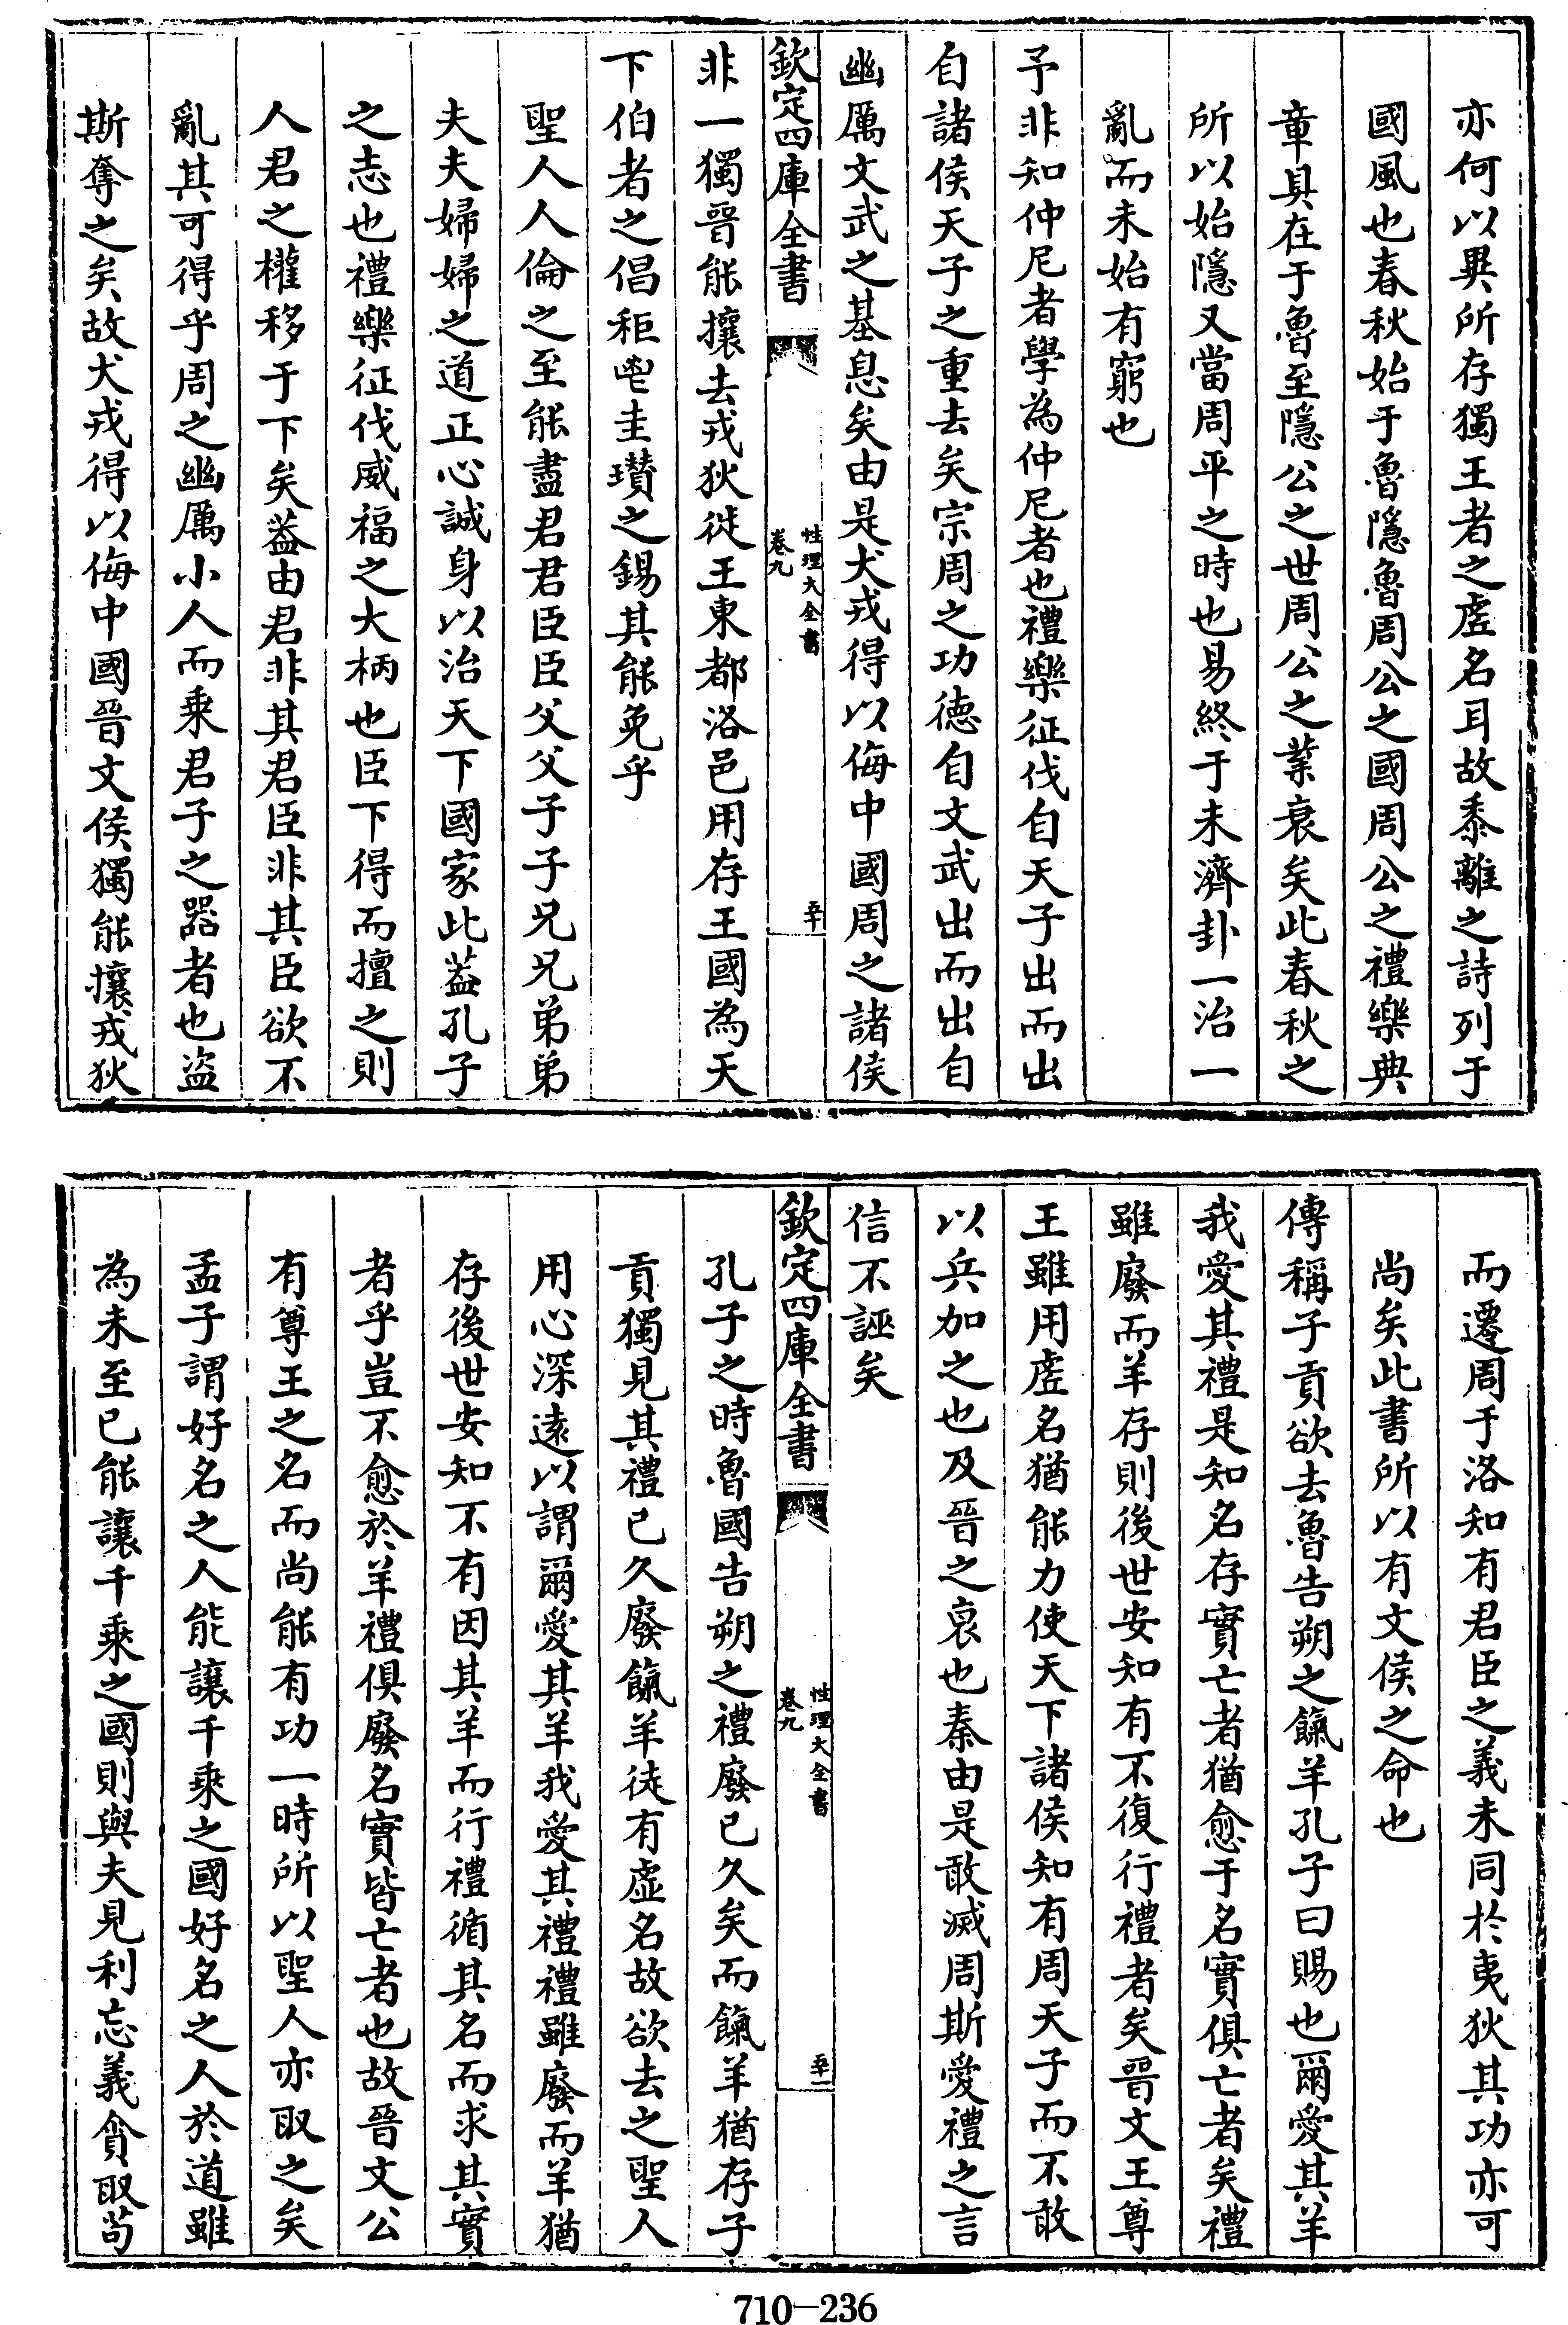 亦何以異所存獨王者之虛名耳故黍離之詩列于
國風也春秋始于魯隱魯周公之國周公之禮樂典
章具在于魯至隱公之世周公之業衰矣此春秋之
所以始隱又當周平之時也易終于未濟卦一治一
亂而未始有窮也
予非知仲尼者學為仲尼者也禮樂征伐自天子出而出
自諸侯天子之重去矣宗周之功德自文武出而出自
幽厲文武之基息矣由是犬戎得以侮中國周之諸侯
欽定四庫全書
性理大全書
卷九
五十
非一獨晉能攘去戎狄徙王東都洛邑用存王國為天
下伯者之倡秬鬯圭瓚之錫其能免乎
聖人人倫之至能盡君君臣臣父父子子兄兄弟弟
夫夫婦婦之道正心誠身以治天下國家此蓋孔子
之志也禮樂征伐威福之大柄也臣下得而擅之則
人君之權移于下矣蓋由君非其君臣非其臣欲不
亂其可得乎周之幽厲小人而乗君子之器者也盜
斯奪之矣故犬戎得以侮中國晉文侯獨能攘戎狄
而遷周于洛知有君臣之義未同於夷狄其功亦可
尚矣此書所以有文侯之命也
傳稱子貢欲去魯告朔之餼羊孔子曰賜也爾愛其羊
我愛其禮是知名存實亡者猶愈于名實俱亡者矣禮
雖廢而羊存則後世安知有不復行禮者矣晉文王尊
王雖用虛名猶能力使天下諸侯知有周天子而不敢
以兵加之也及晉之衰也秦由是敢滅周斯愛禮之言
信不誣矣
欽定四庫全書
性理大全書
卷九
五十一
孔子之時魯國告朔之禮廢已久矣而餼羊猶存子
貢獨見其禮已久廢餼羊徒有虛名故欲去之聖人
用心深遠以謂爾愛其羊我愛其禮禮雖廢而羊猶
存後世安知不有因其羊而行禮循其名而求其實
者乎豈不愈於羊禮俱廢名實皆亡者也故晉文公
有尊王之名而尚能有功一時所以聖人亦取之矣
孟子謂好名之人能讓千乗之國好名之人於道雖
為未至已能讓千乗之國則與夫見利忘義貪取茍
710-236